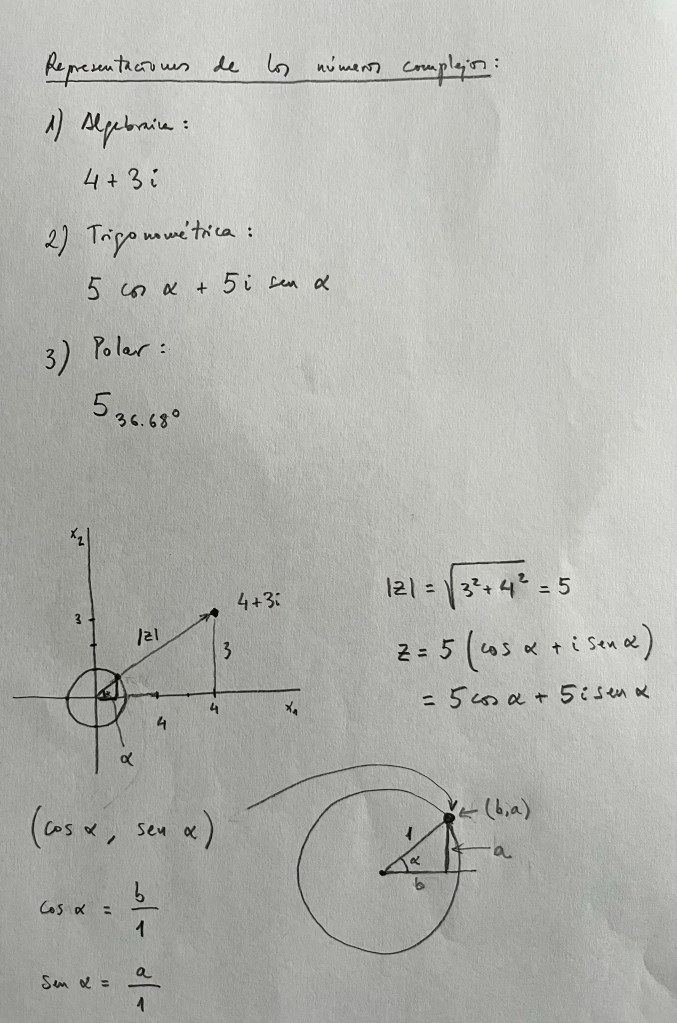 Representaciones de los números complejos:
1) Algebraica:
4 + 3i
2) Trigonométrica:
5 cos α + 5i sen α
3) Polar:
5 36.68°
x2
3
|z|
4+3i
3
4
4
x1
α
|z| = √3² + 4² = 5
z = 5 (cos α + i sen α)
= 5 cos α + 5i sen α
(cos α, sen α)
cos α = b/1
sen α = a/1
(b,a)
1
α
a
b